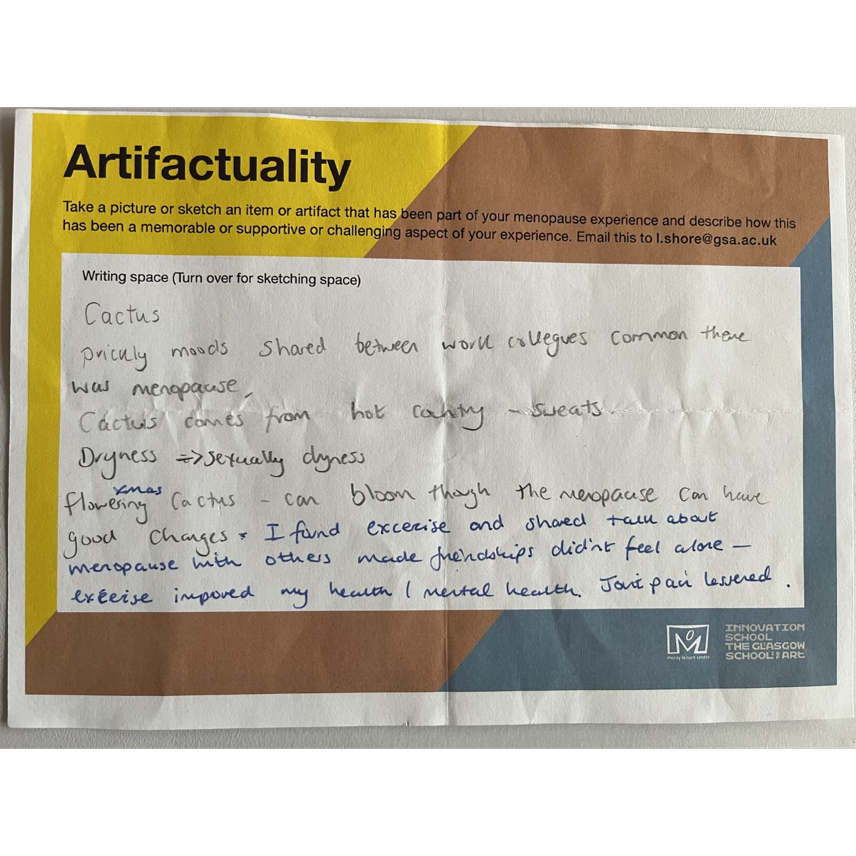 Artifactuality
Take a picture or sketch an item or artifact that has been part of your menopause experience and describe how this
has been a memorable or supportive or challenging aspect of your experience. Email this to l.shore@gsa.ac.uk
Writing space (Turn over for sketching space)
Cactus
prickly moods shared between work collegues common there
was menopause,
Cactus comes from hot country – sweats
Dryness => sexually dryness
xmas
flowering Cactus – can bloom though the menopause can have
good changes * I found excerise and shared talk about
menopause with others made friendships did'nt feel alone –
exceise impoved my health / mental health. Joint pain lessered.
INNOVATION
SCHOOL
THE GLASGOW
SCHOOL OF ART